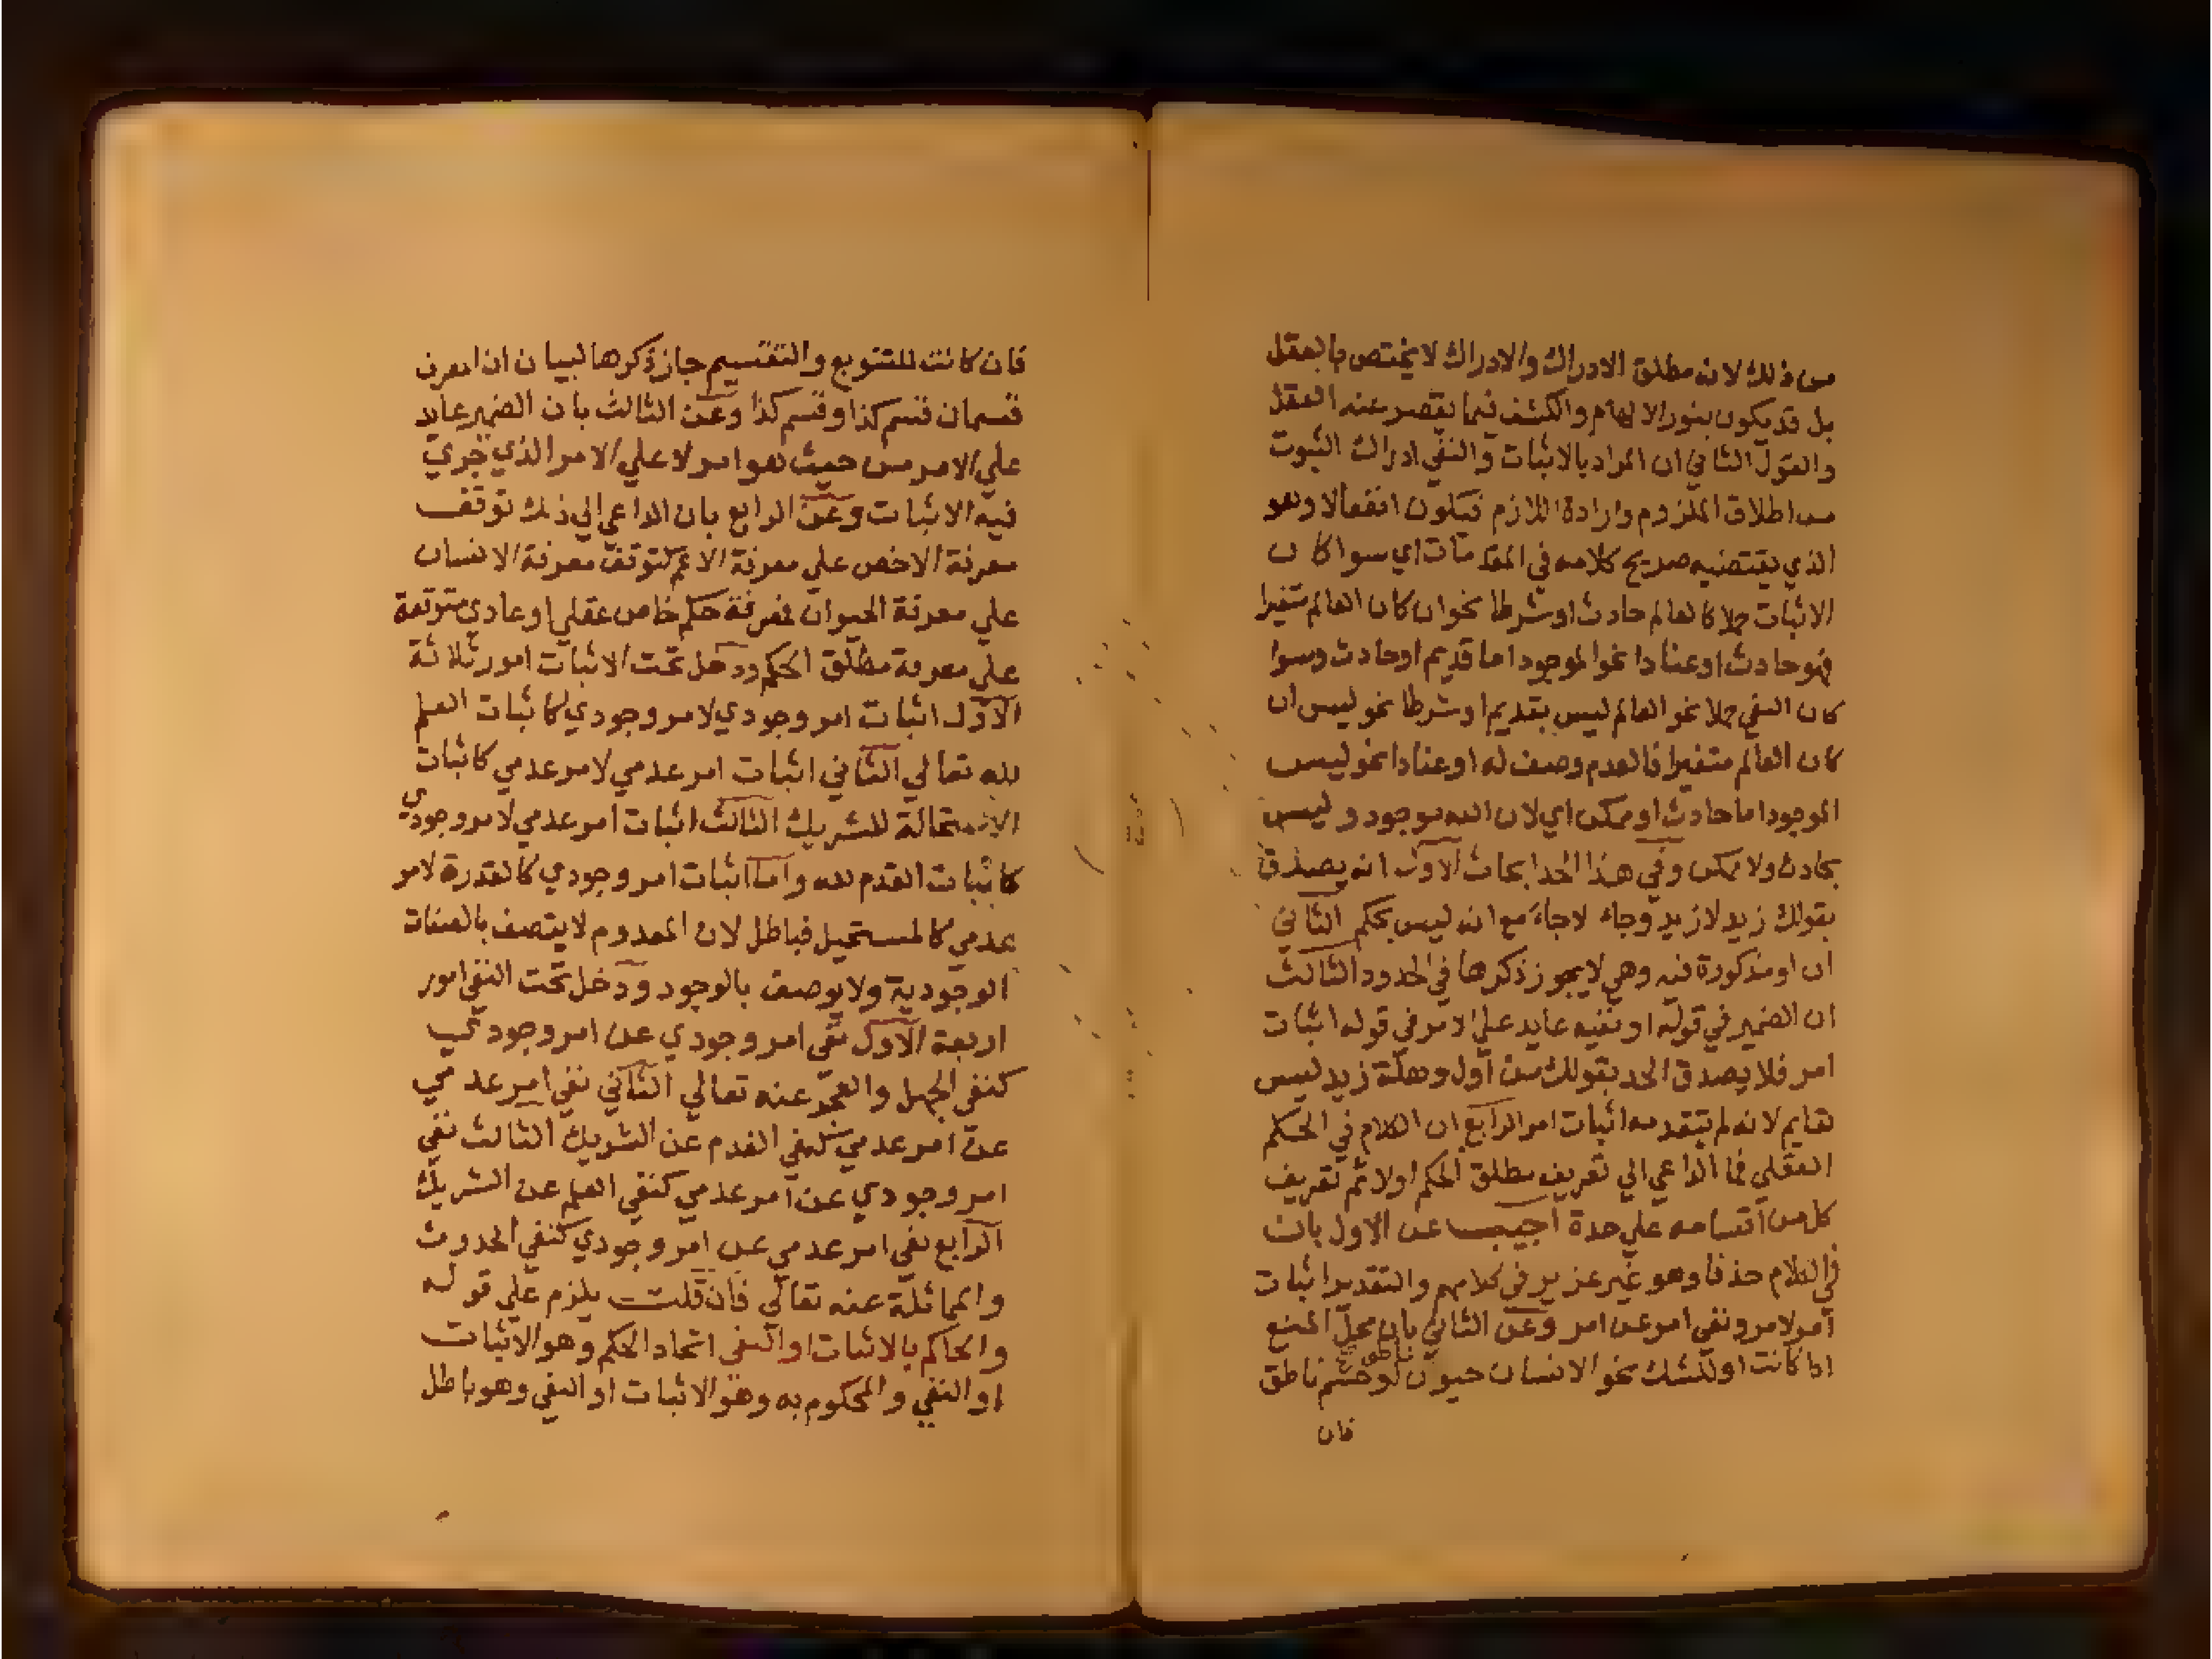 من ذلك لان مطلق الادراك والادراك لا يختص بالعقل
بل قد يكون بنور الالهام والكشف فيما يقصر عنه العقل
والقول الثاني ان المراد بالاثبات والنفي ادراك الثبوت
من اطلاق الملزوم وارادة اللازم فيكون انفعالا وهو
الذي يقتضيه صريح كلامه في المقدمات اي سوا كان
الاثبات حملا كالعالم حادث او شرطا نحو ان كان العالم متغيرا
فهو حادث او عنادا نحو الموجود اما قديم او حادث وسوا
كان النفي حملا نحو العالم ليس بقديم او شرطا نحو ليس ان
كان العالم متغيرا فالعدم وصف له او عنادا نحو ليس
الموجود اما حادث او ممكن اي لان الله موجود وليس
بحادث ولا ممكن وفي هذا الحد ابحاث الاول انه يصدق
بقولك زيد لازيد وجاء لاجاء مع انه ليس بحكم الثاني
ان او مذكورة فيه وهي لا يجوز ذكرها في الحدود الثالث
ان الضمير في قوله او نفيه عايد علي الامر في قوله اثبات
امر فلا يصدق الحد بقولك من اول وهلة زيد ليس
بقايم لانه لم يتقدمه اثبات امر الرابع ان الكلام في الحكم
العقلي فما الداعي الي تعريف مطلق الحكم اولا ثم تعريف
كل من اقسامه علي حدة اجيب عن الاول بان
في الكلام حذفا وهو غير عزيز في كلامهم والتقدير اثبات
امر لامر ونفي امر عن امر وعن الثاني بان محل المنع
اذا كانت او للشك نحو الانسان حيوان ناطق او جسم ناطق
فان
فان كانت للتنويع والتقسيم جاز ذكرها لبيان ان المعرف
قسمان قسم كذا وقسم كذا وعن الثالث بان الضمير عايد
علي الامر من حيث هو امر لا علي الامر الذي جري
فيه الاثبات وعن الرابع بان الداعي الي ذلك توقف
معرفة الاخص علي معرفة الاعم كتوقف معرفة الانسان
علي معرفة الحيوان فمعرفة حكم خاص عقلي او عادي متوقفة
علي معرفة مطلق الحكم ودخل تحت الاثبات امور ثلاثة
الاول اثبات امر وجودي لامر وجودي كاثبات العلم
لله تعالي الثاني اثبات امر عدمي لامر عدمي كاثبات
الاستحالة للشريك الثالث اثبات امر عدمي لامر وجودي
كاثبات القدم لله واما اثبات امر وجودي كالقدرة لامر
عدمي كالمستحيل فباطل لان المعدوم لا يتصف بالصفات
الوجودية ولا يوصف بالوجود ودخل تحت النفي امور
اربعة الاول نفي امر وجودي عن امر وجودي
كنفي الجهل والعجز عنه تعالي الثاني نفي امر عدمي
عن امر عدمي كنفي القدم عن الشريك الثالث نفي
امر وجودي عن امر عدمي كنفي العلم عن الشريك
الرابع نفي امر عدمي عن امر وجودي كنفي الحدوث
والمماثلة عنه تعالي فان قلت يلزم علي قوله
والحاكم بالاثبات او النفي اتحاد الحكم وهو الاثبات
او النفي والمحكوم به وهو الاثبات او النفي وهو باطل